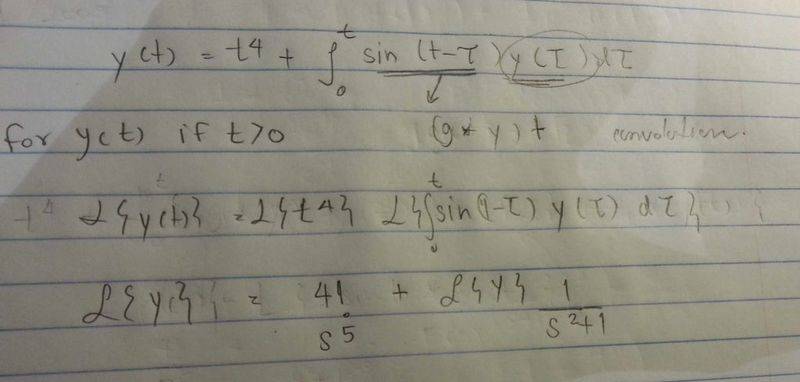 y(t) = t4 + ∫₀ᵗ sin (t-τ) y(τ) dτ
for y(t) if t>0 (g * y) t convolution.
t4 ℒ{y(t)} = ℒ{t4} ℒ{∫₀ᵗ sin(t-τ) y(τ) dτ}
ℒ{y} = 4!/s5 + ℒ{y} 1/(s²+1)